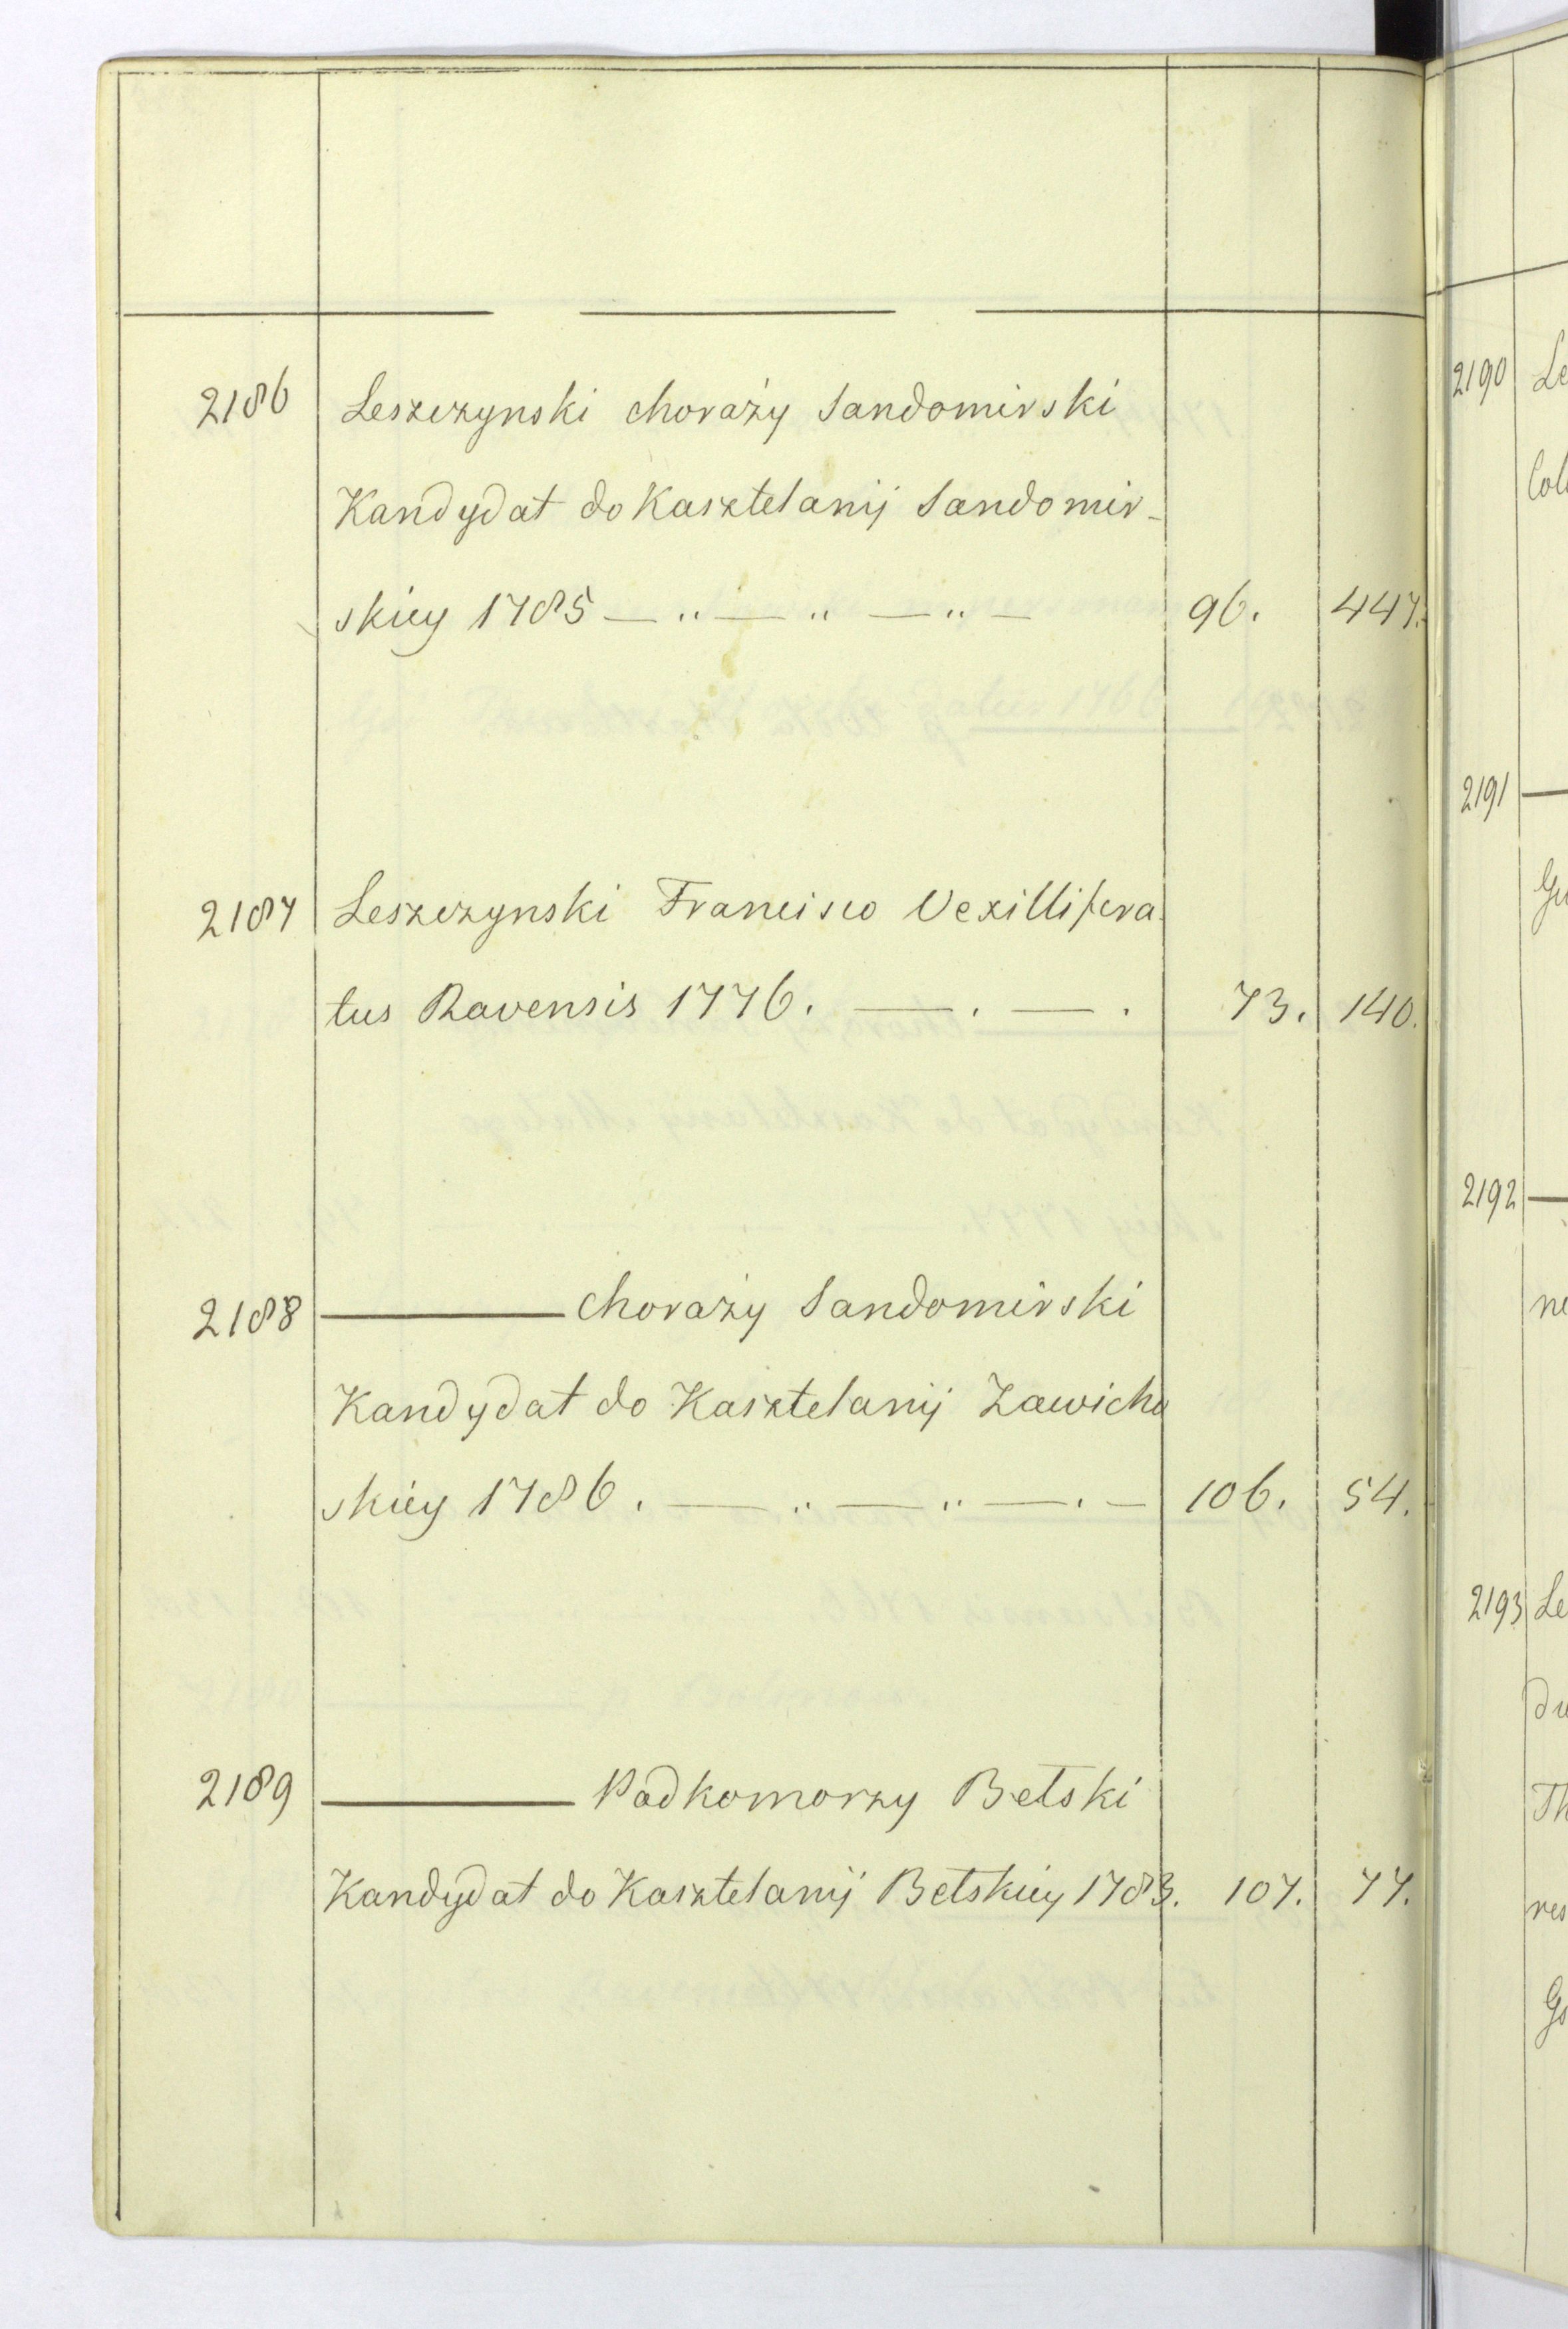 2186 Leszczynski chorąży Sandomirski
Kandydat do Kasztelanij Sandomir-
skiey 1785 — „ — „ — „ — 96. 447.
2187 Leszczynski Francisco Vexillifera-
tus Ravensis 1776. — . — . 73. 140.
2188 ——— chorąży Sandomirski
Kandydat do Kasztelanij Zawicho
skiey 1786. — „ — „ — . — 106. 54.
2189 ——— Podkomorzy Bełski
Kandydat do Kasztelanij Bełskiey 1783. 107. 77.
2190 Le
Col
2191 —
Gu
2192 —
ne
2193 Le
du
Th
res
Go